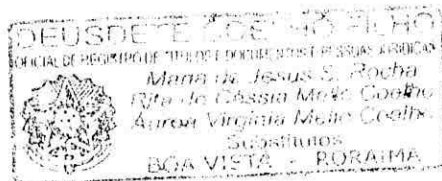 DEUSDETE COELHO FILHO
OFICIAL DE REGISTRO DE TITULOS E DOCUMENTOS E PESSOAS JURIDICAS
Maria de Jesus S. Rocha
Rita de Cássia Mello Coelho
Aurea Virginia Mello Coelho
Substitutos
BOA VISTA - RORAIMA